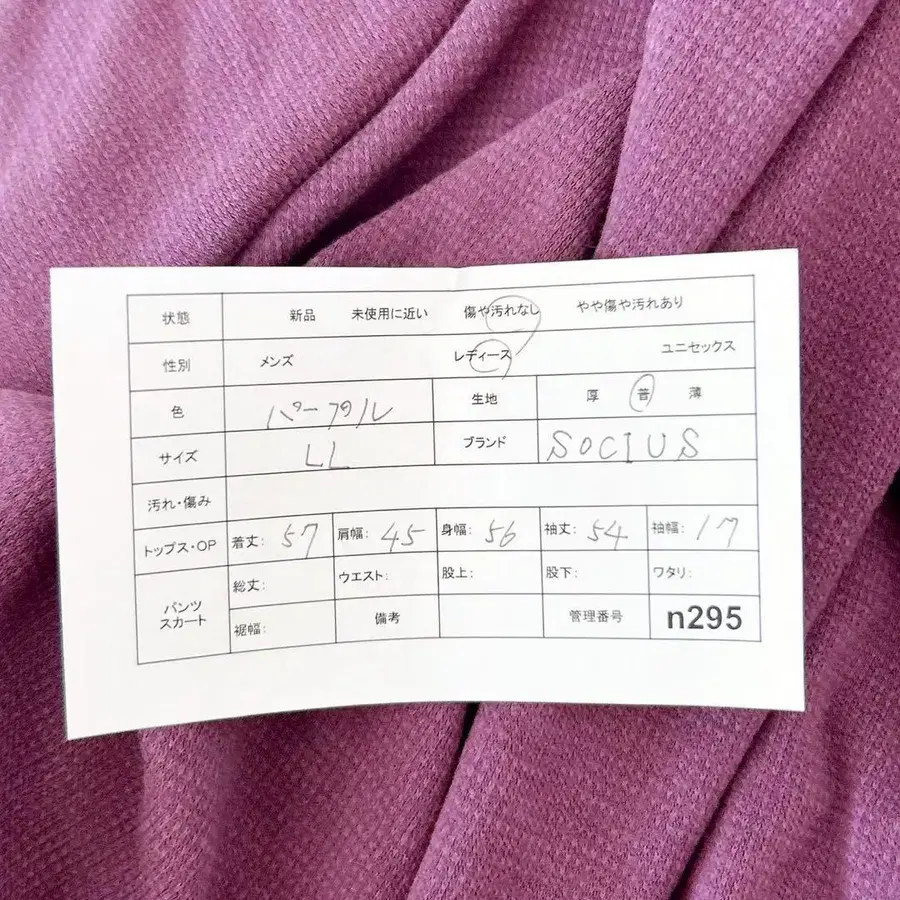 状態 新品 未使用に近い 傷や汚れなし やや傷や汚れあり
性別 メンズ レディース ユニセックス
色 パープル 生地 厚 普 薄
サイズ LL ブランド SOCIUS
汚れ・傷み
トップス・OP 着丈: 57 肩幅: 45 身幅: 56 袖丈: 54 袖幅: 17
パンツ スカート 総丈: ウエスト: 股上: 股下: ワタリ:
裾幅: 備考 管理番号 n295